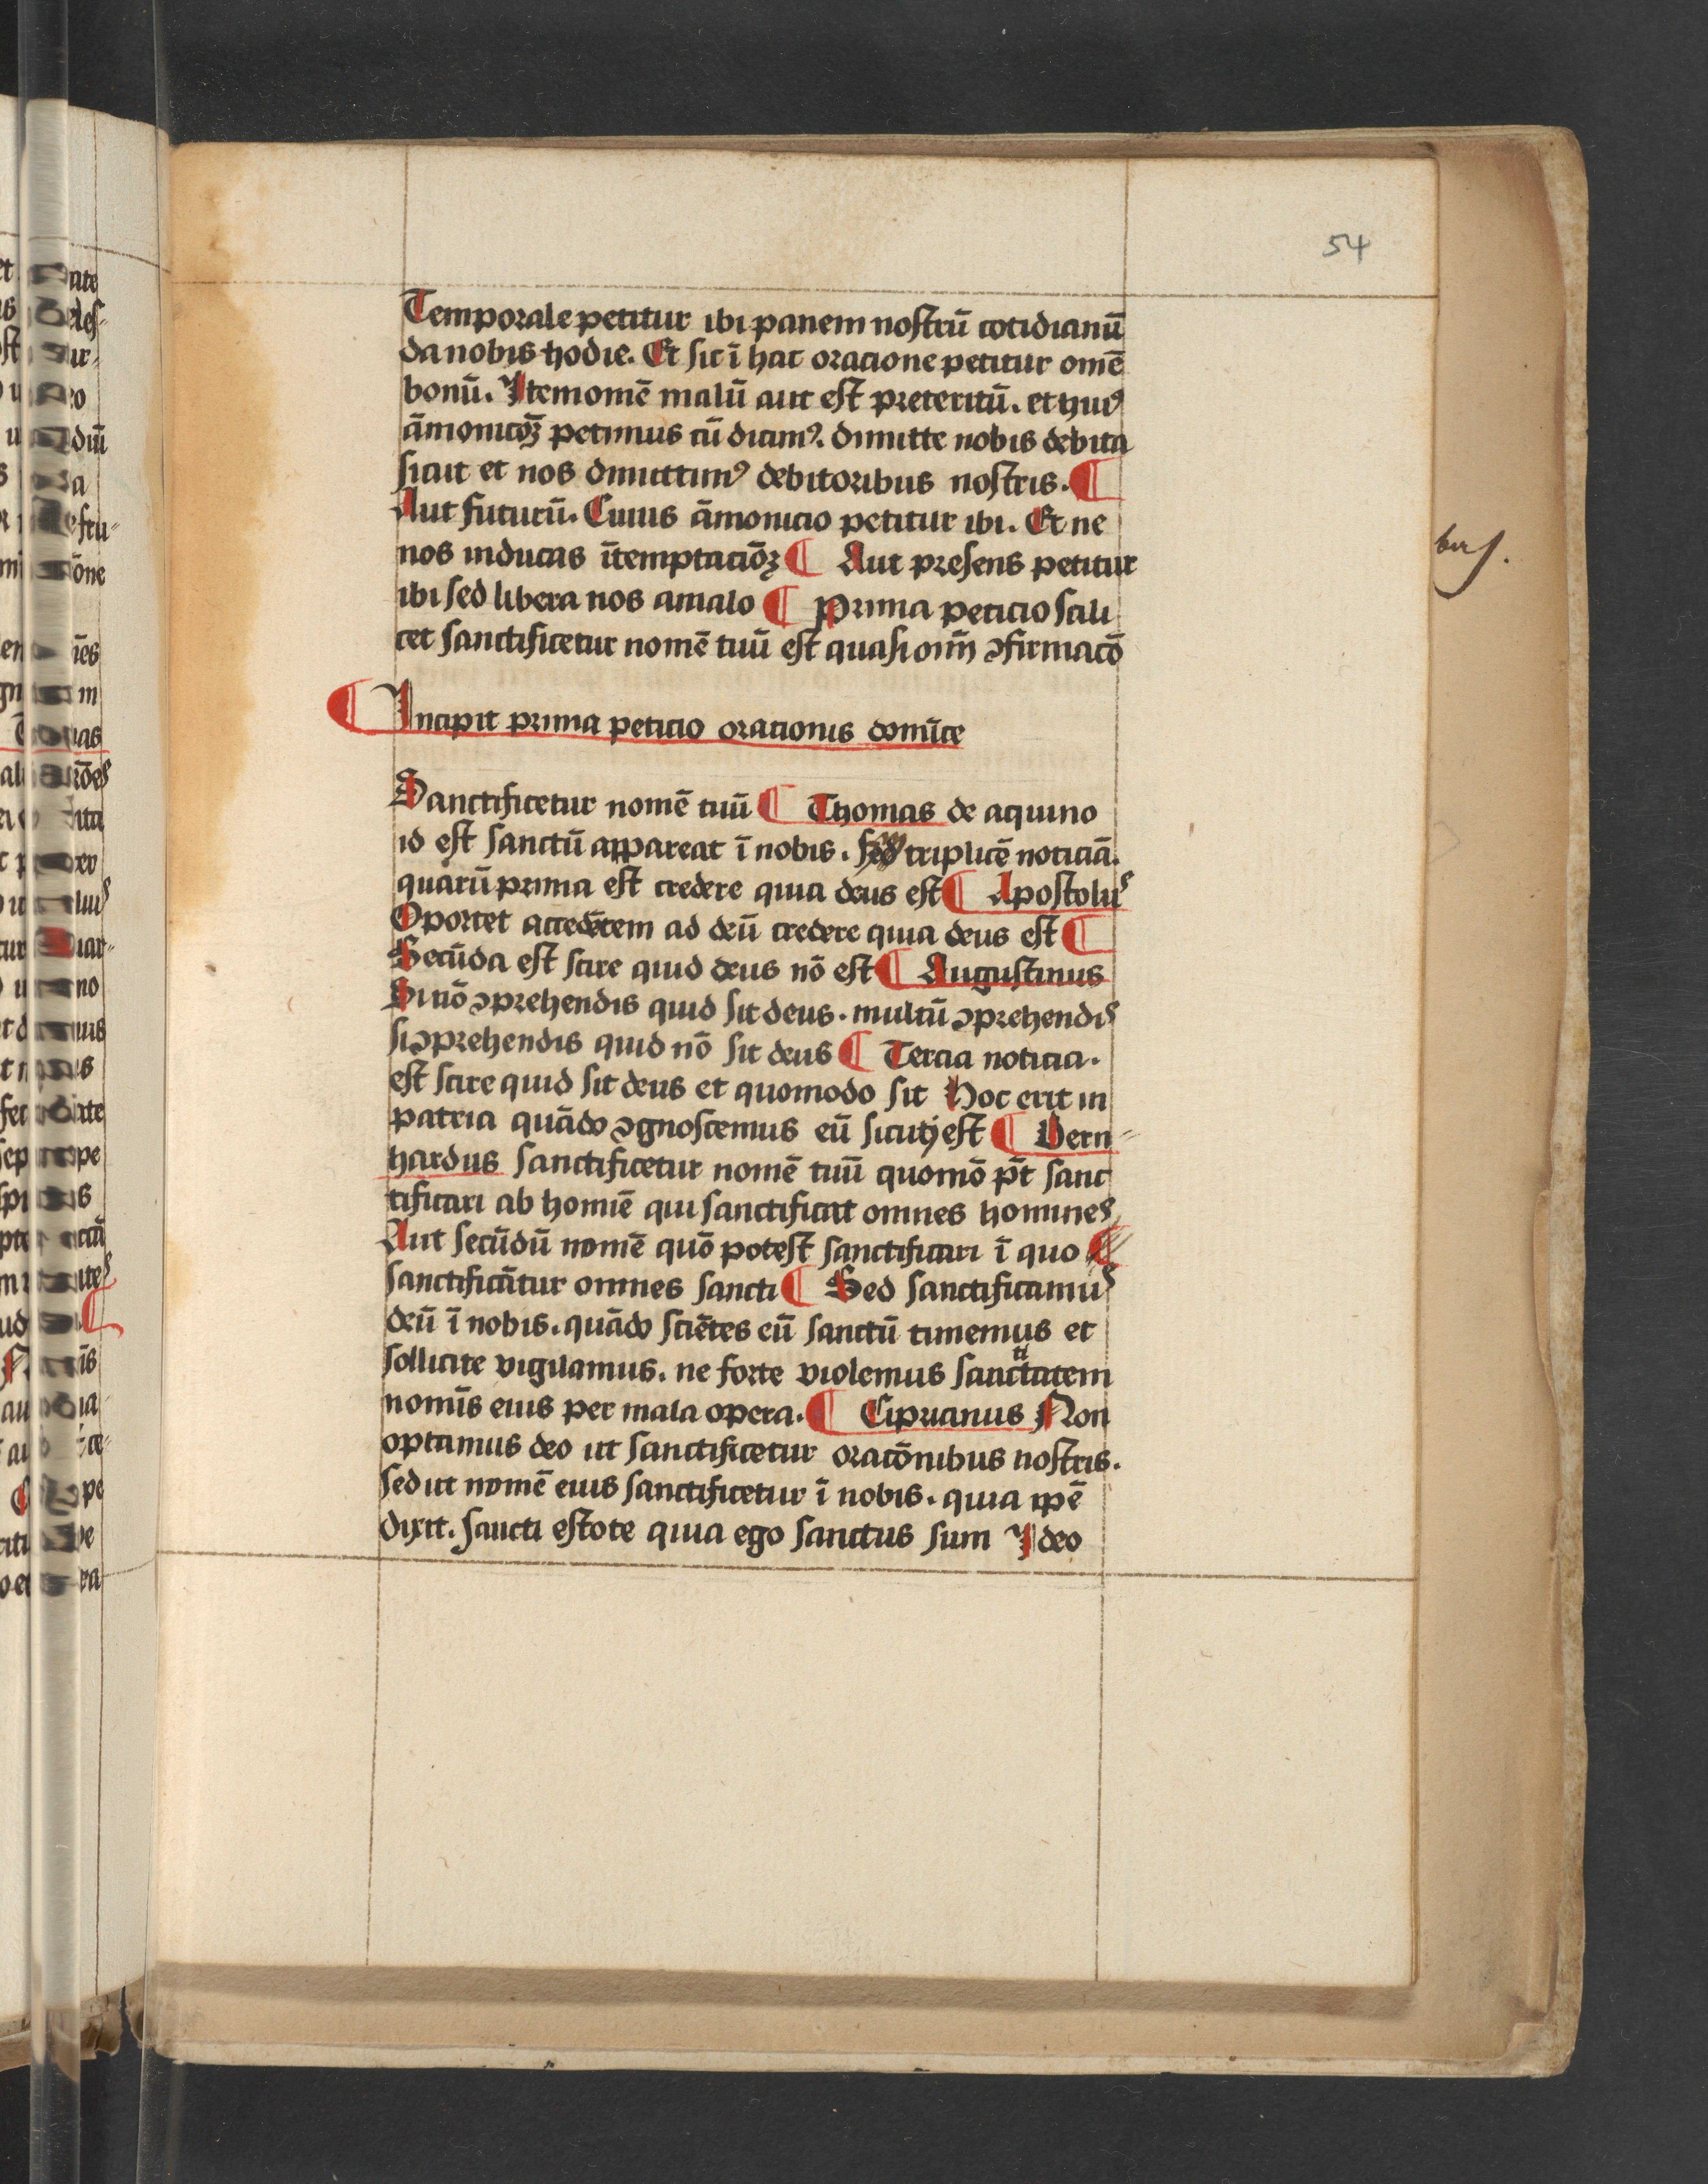 54
Temporale petitur ibi panem noſtrū cotidianū
da nobis hodie. Et ſic ī hac oracione petitur omē
bonū. Item omē malū aut eſt preteritū. et huiꝰ
āmonicōꝫ petimus cū dicimꝰ. dimitte nobis debita
ſicut et nos dimittimꝰ debitoribus noſtris. ¶
Aut futurū. Cuius āmonicio petitur ibi. Et ne
nos inducas ī temptaciōꝫ ¶ Aut preſens petitur
ibi ſed libera nos a malo ¶ Prima peticio ſcili
cet ſanctificetur nomē tuū eſt quaſi oīm ꝯfirmacō
¶ Incipit prima peticio orationis domīce
Sanctificetur nomē tuū ¶ Thomas de aquino
id eſt ſanctū appareat ī nobis. triplicē noticiā.
quarū prima eſt credere quia deus eſt ¶ Apoſtolus
Oportet accedētem ad deū credere quia deus eſt ¶
Secūda eſt ſcire quid deus nō eſt ¶ Auguſtinus
Si nō ꝯprehendis quid ſit deus. multū ꝯprehendis
ſi ꝯprehendis quid nō ſit deus ¶ Tercia noticia.
eſt ſcire quid ſit deus et quomodo ſit Hoc erit in
patria quādo ꝯgnoſcemus eū ſicuti eſt ¶ Bern
hardus ſanctificetur nomē tuū quomō pt̄ ſanc
tificari ab homīe qui ſanctificat omnes homines
Aut ſecūdū nomē quō poteſt ſanctificari ī quo ¶
ſanctificātur omnes ſancti ¶ Sed ſanctificamus
deū ī nobis. quādo ſciētes eū ſanctū timemus et
ſollicite vigilamus. ne forte violemus ſanctitatem
nomīs eius per mala opera. ¶ Ciprianus Non
optamus deo ut ſanctificetur oracōnibus noſtris.
ſed ut nomē eius ſanctificetur ī nobis. quia ipē
dixit. ſancti eſtote quia ego ſanctus ſum Ideo